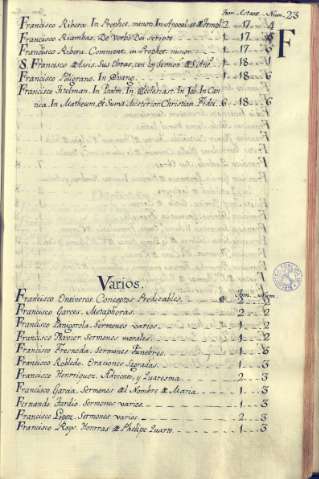 Tom. Estant. Num. 23
Francisco Ribera. In Prophet. minor. In Apocal. 2 .. 17 .. 4
Francisco Verbo Dei scripto 1 .. 17
Francisco Ribera. Comment. in Prophet. minor. 1 .. 17 .. 5
F
S. Francisco Sus Obras, con 1 .. 18 .. 1
Francisco 1 .. 18 .. 6
Francisco Titelman. In Psalm. In Ecclesiast. In Job. In Can
tica. In Matheum, et Christian Fidei. 6 .. 18 .. 6
Varios.
Tom. Num.
Francisco Ontiveros Conceptos Predicables.
Francisco Garces. Metaphoras. 2 .. 2
Francisco Panigorola. Sermones varios. 1 .. 2
Francisco Sermones morales. 1 .. 2
Francisco Fresneda. Sermones Funebres. 1 .. 3
Francisco Robledo. Oraciones Sagradas. 1 .. 3
Francisco Henriquez. Adviento, y Quaresma. 2 .. 3
Francisco Garcia. Sermones Nombre de Maria. 1 .. 3
Fernando Sermones varios. 1 .. 3
Francisco Lopez. Sermones varios 2 .. 3
Francisco Honrras de Phelipe Quarto. 1 .. 3